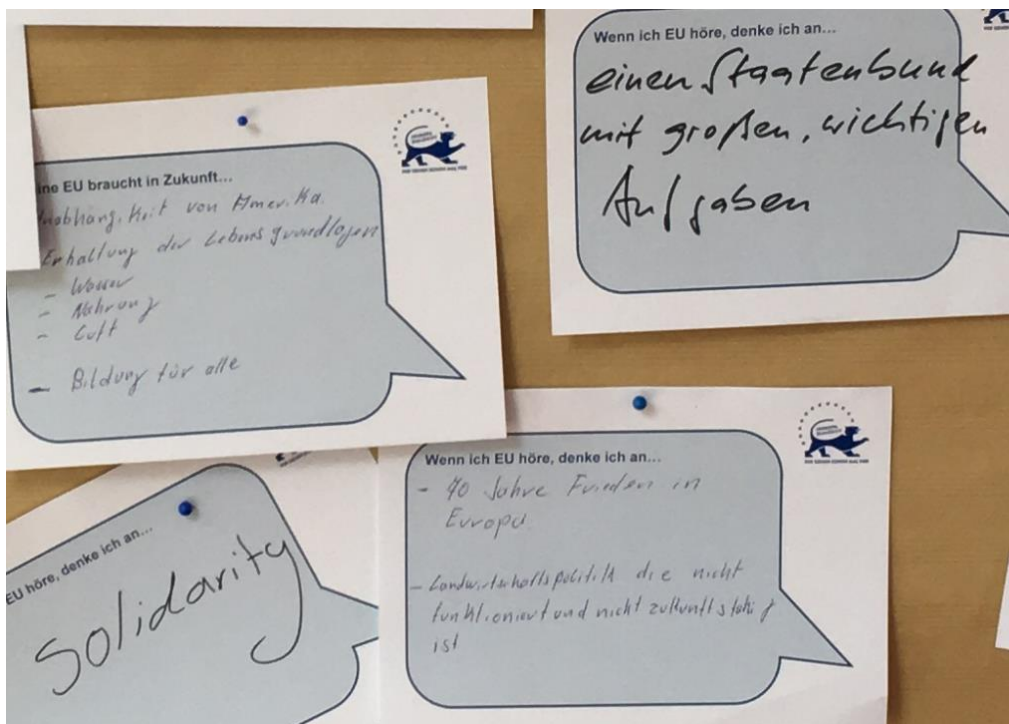 ine EU braucht in Zukunft...
nabhängikeit von Amerika.
Erhaltung der Lebensgrundlagen
- Wasser
- Nahrung
- Luft
- Bildung für alle
Wenn ich EU höre, denke ich an...
einen Staatenbund
mit großen, wichtigen
Aufgaben
EU höre, denke ich an...
Solidarity
Wenn ich EU höre, denke ich an...
- 70 Jahre Frieden in
Europa.
- Landwirtschaftspolitik die nicht
funktioniert und nicht zukunftsfähig
ist